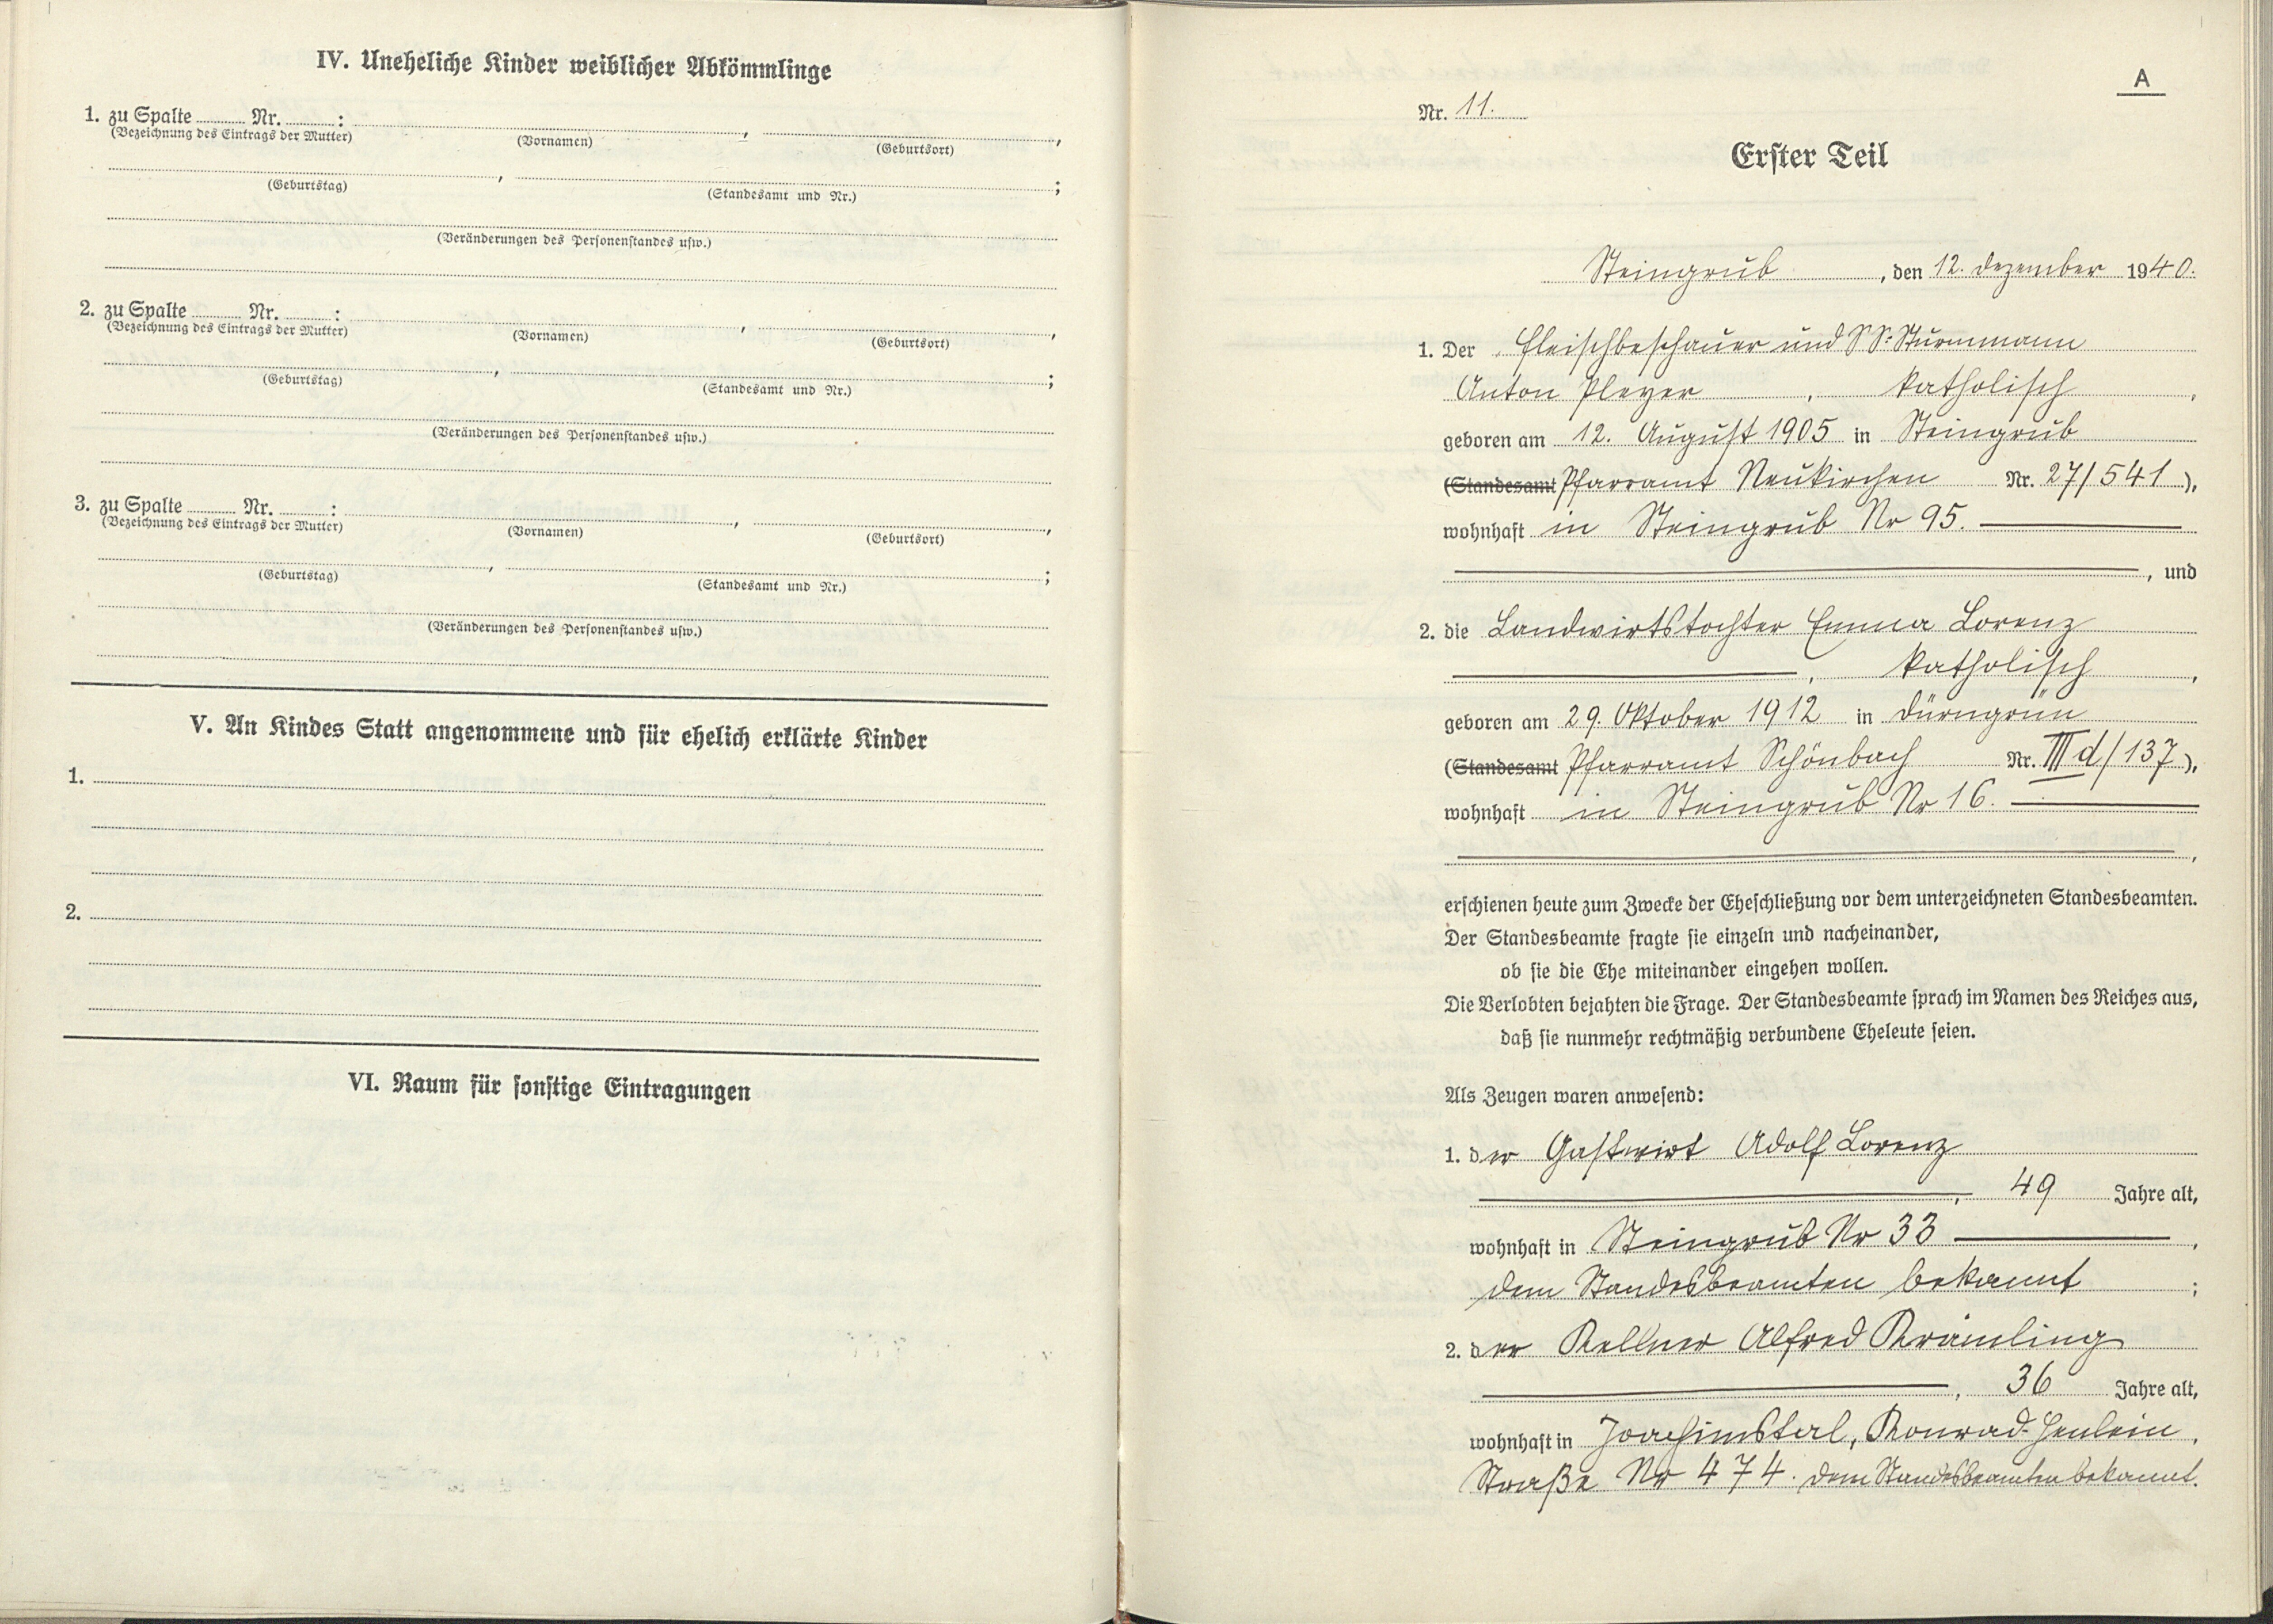 IV. Uneheliche Kinder weiblicher Abkömmlinge
1. zu Spalte ........ Nr. ........ :
(Bezeichnung des Eintrags der Mutter) (Vornamen) , (Geburtsort) ,
(Geburtstag) , (Standesamt und Nr.) ;
(Veränderungen des Personenstandes usw.)
2. zu Spalte ........ Nr. ........ :
(Bezeichnung des Eintrags der Mutter) (Vornamen) , (Geburtsort) ,
(Geburtstag) , (Standesamt und Nr.) ;
(Veränderungen des Personenstandes usw.)
3. zu Spalte ........ Nr. ........ :
(Bezeichnung des Eintrags der Mutter) (Vornamen) , (Geburtsort) ,
(Geburtstag) , (Standesamt und Nr.) ;
(Veränderungen des Personenstandes usw.)
V. An Kindes Statt angenommene und für ehelich erklärte Kinder
1.
2.
VI. Raum für sonstige Eintragungen
A
Nr. 11.
Erster Teil
Steingrub , den 12. Dezember 1940.
1. Der Fleischbeschauer und SS-Sturmmann
Anton Pleyer , katholisch ,
geboren am 12. August 1905 in Steingrub
(Standesamt Pfarramt Neukirchen Nr. 27/541 ),
wohnhaft in Steingrub Nr 95.
, und
2. die Landwirtstochter Emma Lorenz
, katholisch ,
geboren am 29. Oktober 1912 in Dürngrün
(Standesamt Pfarramt Schönbach Nr. III d/137 ),
wohnhaft in Steingrub Nr 16.
,
erschienen heute zum Zwecke der Eheschließung vor dem unterzeichneten Standesbeamten.
Der Standesbeamte fragte sie einzeln und nacheinander,
ob sie die Ehe miteinander eingehen wollen.
Die Verlobten bejahten die Frage. Der Standesbeamte sprach im Namen des Reiches aus,
daß sie nunmehr rechtmäßig verbundene Eheleute seien.
Als Zeugen waren anwesend:
1. der Gastwirt Adolf Lorenz
, 49 Jahre alt,
wohnhaft in Steingrub Nr 33 ,
dem Standesbeamten bekannt ;
2. der Kellner Alfred Krämling
, 36 Jahre alt,
wohnhaft in Joachimstal, Konrad-Henlein,
Straße Nr 474. dem Standesbeamten bekannt.